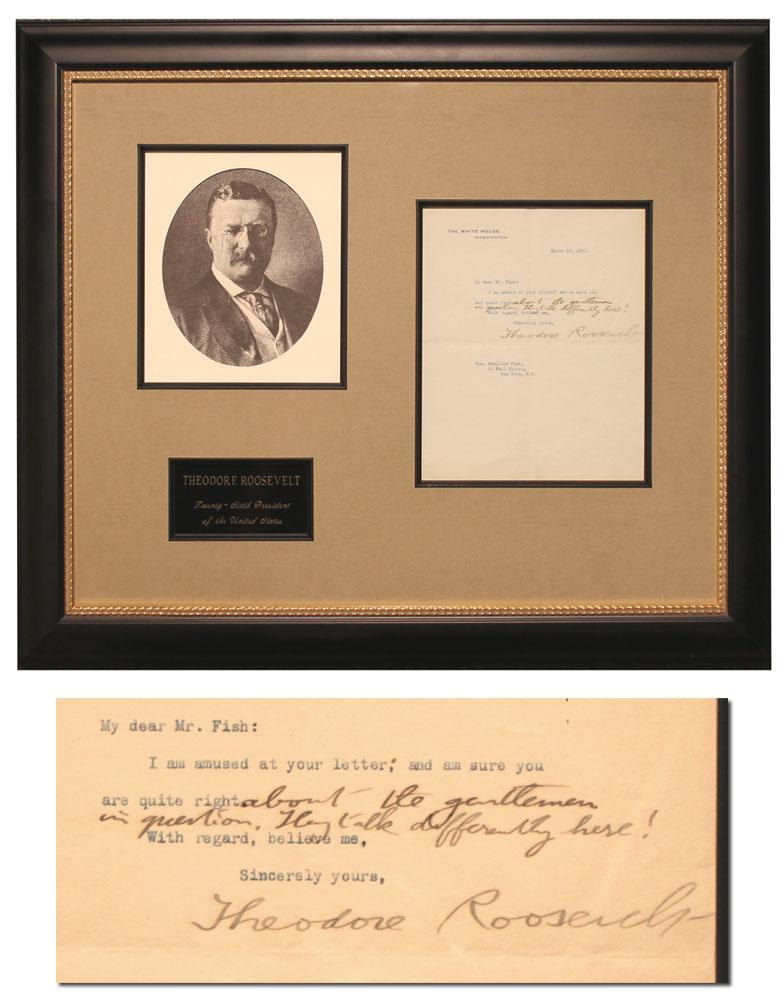 THE WHITE HOUSE
WASHINGTON
My dear Mr. Fish:
I am amused at your letter; and am sure you
are quite right about the gentlemen
in question. They talk differently here!
With regard, believe me,
Sincerely yours,
Theodore Roosevelt
Hon. Hamilton Fish,
Wall Street,
New York, N.Y.
THEODORE ROOSEVELT
Twenty-Sixth President
of the United States
My dear Mr. Fish:
I am amused at your letter; and am sure you
are quite right about the gentlemen
in question. They talk differently here!
With regard, believe me,
Sincerely yours,
Theodore Roosevelt